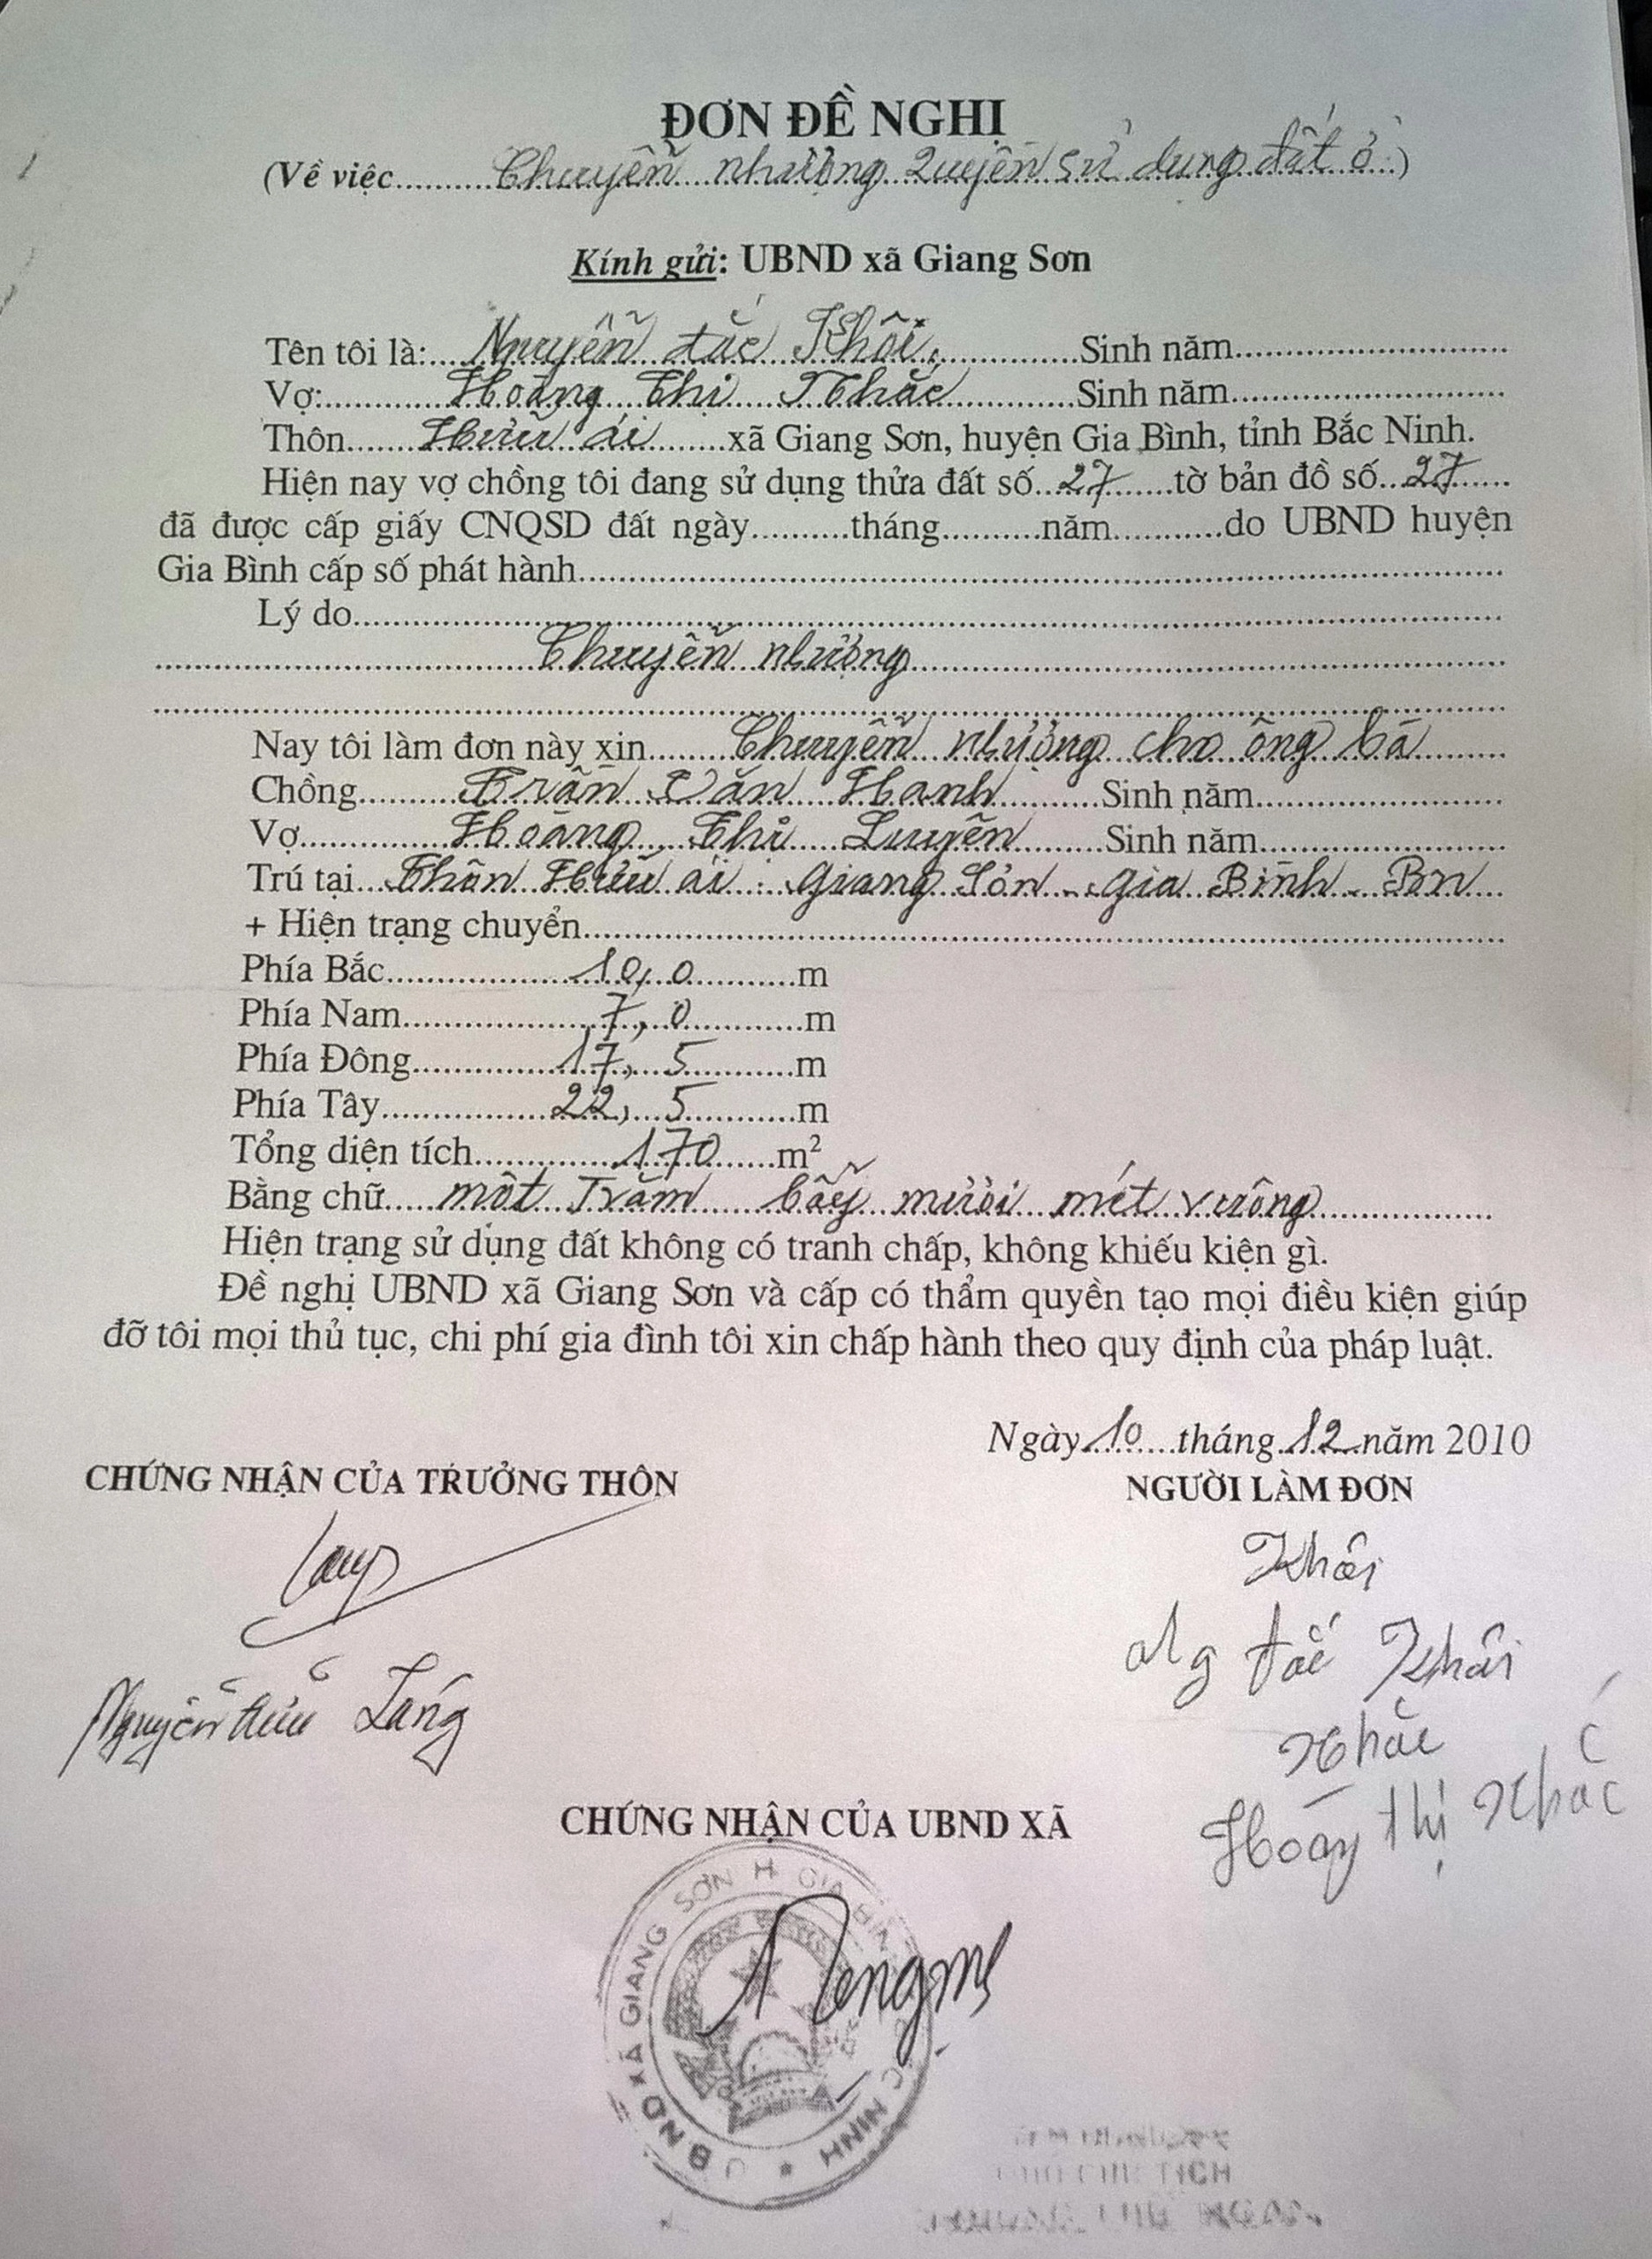 ĐƠN ĐỀ NGHỊ
(Về việc..........Chuyển nhượng quyền sử dụng đất ở..)
Kính gửi: UBND xã Giang Sơn
Tên tôi là:....Nguyễn đắc Khôi...............Sinh năm............................
Vợ:............Hoàng thị Nhắc.............Sinh năm............................
Thôn.......Hữu ái.......xã Giang Sơn, huyện Gia Bình, tỉnh Bắc Ninh.
Hiện nay vợ chồng tôi đang sử dụng thửa đất số..27.......tờ bản đồ số...27......
đã được cấp giấy CNQSD đất ngày..........tháng..........năm...........do UBND huyện
Gia Bình cấp số phát hành............................................................
Lý do............................................................
............................Chuyển nhượng............................
............................................................
Nay tôi làm đơn này xin.........Chuyển nhượng cho ông bà........
Chồng..........Trần Văn Hanh..........Sinh năm.........................
Vợ...............Hoàng Thị Luyên.........Sinh năm.........................
Trú tại...Thôn Hữu ái - Giang Sơn - Gia Bình - BN...
+ Hiện trạng chuyển............................................................
Phía Bắc...................10,0............m
Phía Nam...................7,0............m
Phía Đông...............17,5............m
Phía Tây.................22,5............m
Tổng diện tích..............170.......m²
Bằng chữ.....một Trăm bẩy mười mét vuông..................
Hiện trạng sử dụng đất không có tranh chấp, không khiếu kiện gì.
Đề nghị UBND xã Giang Sơn và cấp có thẩm quyền tạo mọi điều kiện giúp
đỡ tôi mọi thủ tục, chi phí gia đình tôi xin chấp hành theo quy định của pháp luật.
Ngày 10 tháng 12 năm 2010
CHỨNG NHẬN CỦA TRƯỞNG THÔN
NGƯỜI LÀM ĐƠN
Khôi
Ng đắc Khôi
Nguyễn Láng
Nhắc
Hoàng thị Nhắc
CHỨNG NHẬN CỦA UBND XÃ
UBND XÃ GIANG SƠN H GIA BÌNH NINH
TỊCH